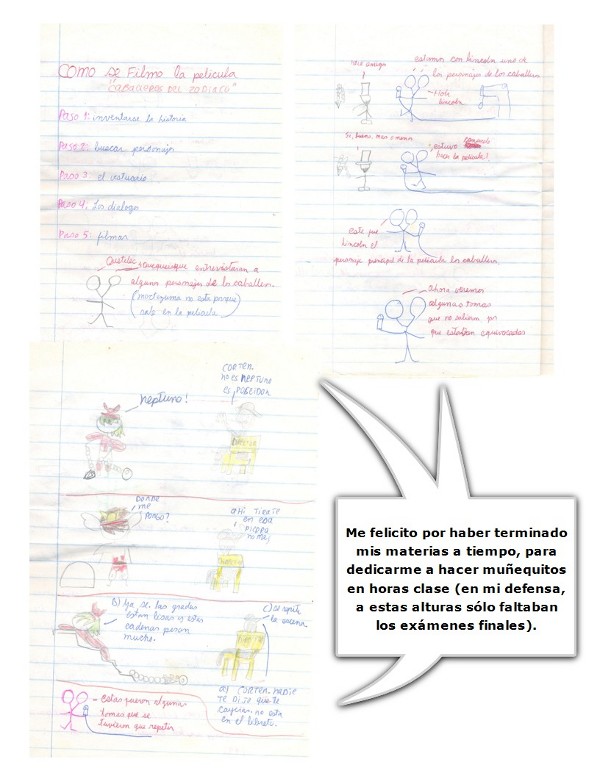 COMO SE Filmo la pelicula
"CABALLEROS DEL ZODIACO"
Paso 1: inventarar la historia
Paso 2: buscar personajes
Paso 3: el vestuario
Paso 4: Los dialogo
Paso 5: filmar
entrevistaran a
alguno personajes de los caballeros
(moctezuma no esta porque)
sale en la pelicula
estamos con Lincoln uno de
los personajes de los caballeros
Hola
Lincoln
Si, bueno, mas o menos
estuvo
bien la pelicula?
este fue
Lincoln el
personaje principal de la pelicula los caballeros
Ahora veremos
algunas tomas
que no salieron por
que estaban equivocadas
Neptuno!
CORTEN.
no es NEPTUNO
es POSEIDON
DONDE
ME
PONGO?
AHI TIRATE
EN ESA
PIEDRA
NOMAS
B) Ya se, las gradas
estan lisas y estas
cadenas pesan
mucho.
C) se repite
la escena.
D) CORTEN NADIE
TE DIJO QUE TE
CAYERAS. no esta
en el libreto.
- Estas fueron algunas
tomas que se
tuvieron que repetir
Me felicito por haber terminado
mis materias a tiempo, para
dedicarme a hacer muñequitos
en horas clase (en mi defensa,
a estas alturas sólo faltaban
los exámenes finales).